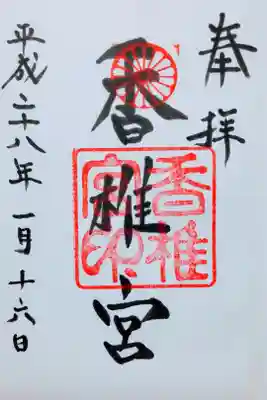 奉拝
香椎宮
香椎
宮印
平成二十八年一月十六日